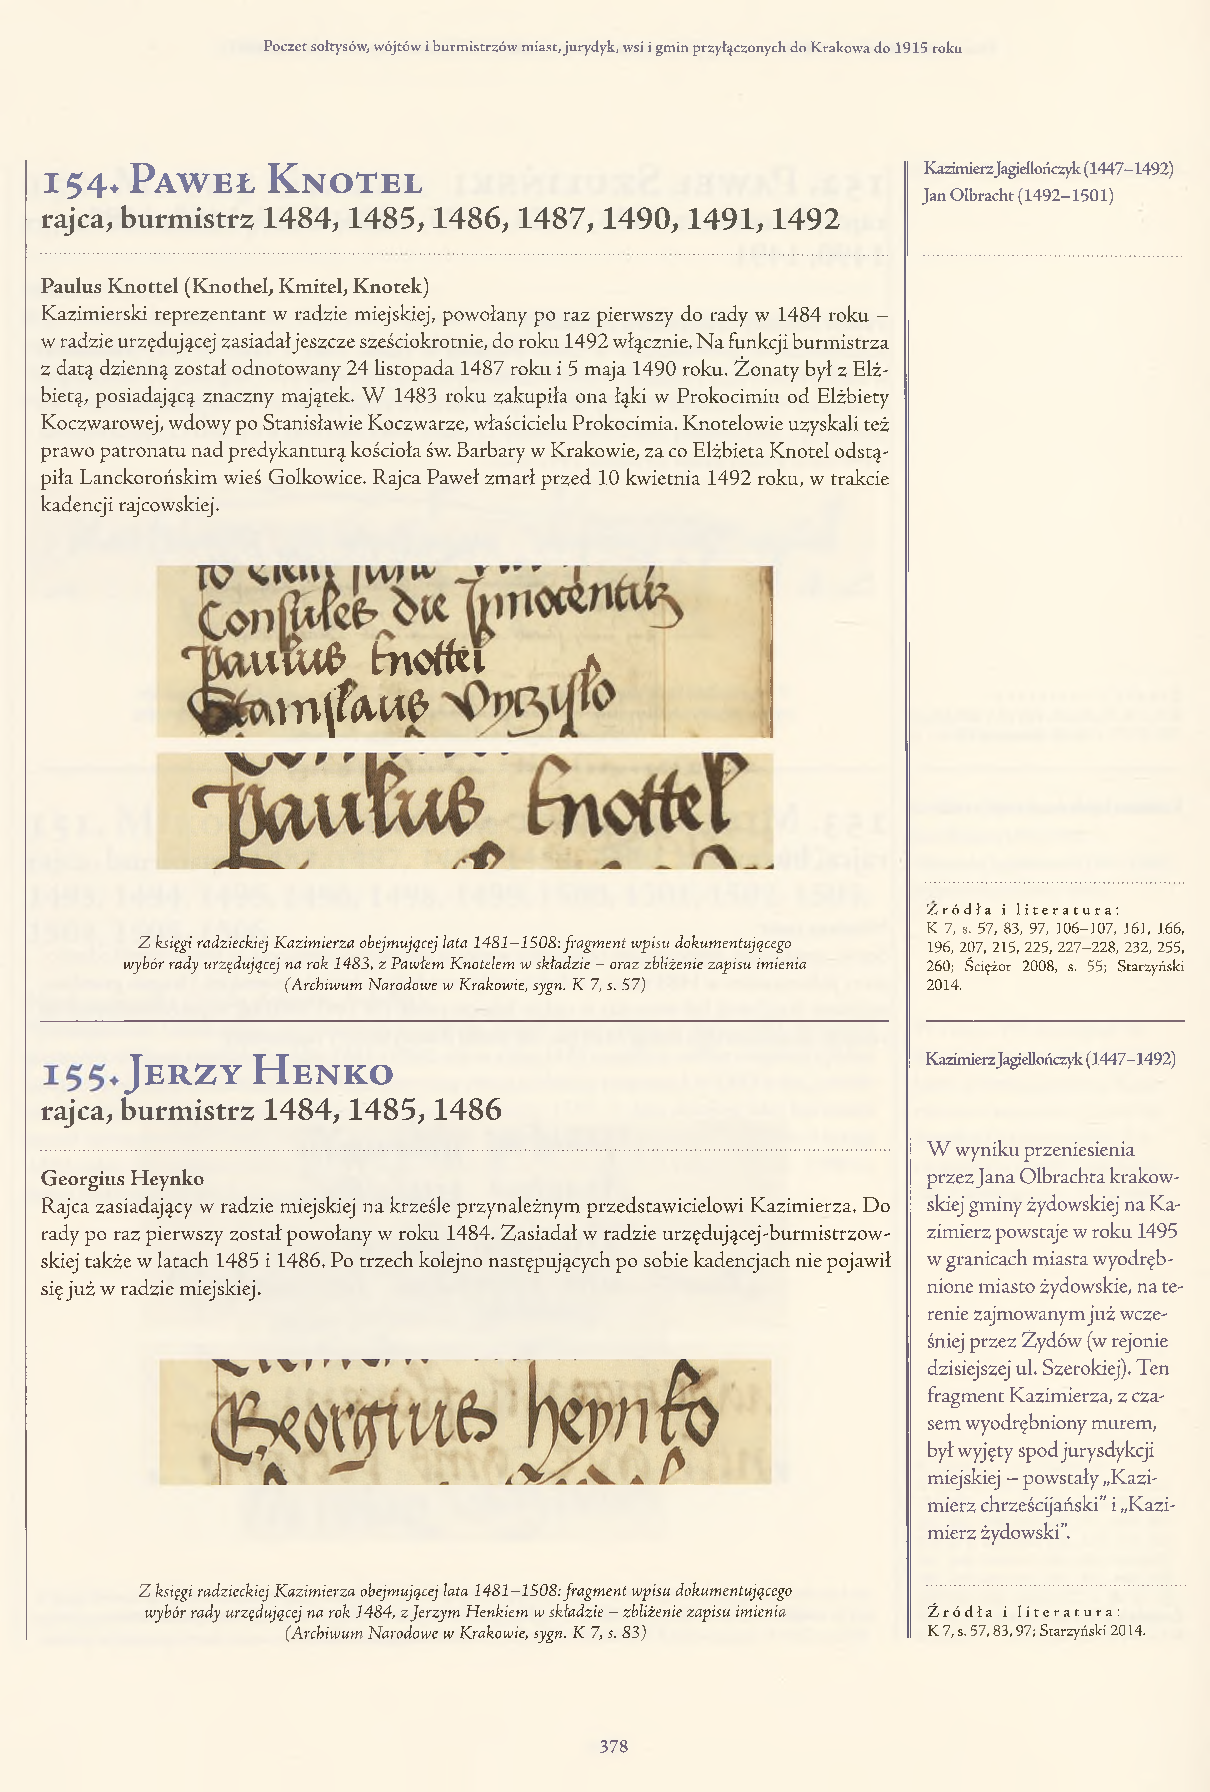 Poczet sołtysów, wójtów i burmistrzów miast, jurydyk, wsi i gmin przyłączonych do Krakowa do 1915 roku
154. Paweł Knotel
rajca, burmistrz 1484, 1485, 1486, 1487, 1490, 1491, 1492
Paulus Knottel (Knothel, Kmitel, Knotek)
Kazimierski reprezentant w radzie miejskiej, powołany po raz pierwszy do rady w 1484 roku –
w radzie urzędującej zasiadał jeszcze sześciokrotnie, do roku 1492 włącznie. Na funkcji burmistrza
z datą dzienną został odnotowany 24 listopada 1487 roku i 5 maja 1490 roku. Żonaty był z Elż-
bietą, posiadającą znaczny majątek. W 1483 roku zakupiła ona łąki w Prokocimiu od Elżbiety
Koczwarowej, wdowy po Stanisławie Koczwarze, właścicielu Prokocimia. Knotelowie uzyskali też
prawo patronatu nad predykanturą kościoła św. Barbary w Krakowie, za co Elżbieta Knotel odstą-
piła Lanckorońskim wieś Golkowice. Rajca Paweł zmarł przed 10 kwietnia 1492 roku, w trakcie
kadencji rajcowskiej.
Consules die Innocentum
Paulus Knottel
Stanislaus
Paulus Knottel
Z księgi radzieckiej Kazimierza obejmującej lata 1481–1508: fragment wpisu dokumentującego
wybór rady urzędującej na rok 1483, z Pawłem Knotelem w składzie – oraz zbliżenie zapisu imienia
(Archiwum Narodowe w Krakowie, sygn. K 7, s. 57)
Kazimierz Jagiellończyk (1447–1492)
Jan Olbracht (1492–1501)
Źródła i literatura:
K 7, s. 57, 83, 97, 106–107, 161, 166,
196, 207, 215, 225, 227–228, 232, 255,
260; Ściężor 2008, s. 55; Starzyński
2014.
155. Jerzy Henko
rajca, burmistrz 1484, 1485, 1486
Georgius Heynko
Rajca zasiadający w radzie miejskiej na krześle przynależnym przedstawicielowi Kazimierza. Do
rady po raz pierwszy został powołany w roku 1484. Zasiadał w radzie urzędującej-burmistrzow-
skiej także w latach 1485 i 1486. Po trzech kolejno następujących po sobie kadencjach nie pojawił
się już w radzie miejskiej.
Georgius heynko
Z księgi radzieckiej Kazimierza obejmującej lata 1481–1508: fragment wpisu dokumentującego
wybór rady urzędującej na rok 1484, z Jerzym Henkiem w składzie – zbliżenie zapisu imienia
(Archiwum Narodowe w Krakowie, sygn. K 7, s. 83)
Kazimierz Jagiellończyk (1447–1492)
W wyniku przeniesienia
przez Jana Olbrachta krakow-
skiej gminy żydowskiej na Ka-
zimierz powstaje w roku 1495
w granicach miasta wyodręb-
nione miasto żydowskie, na te-
renie zajmowanym już wcze-
śniej przez Żydów (w rejonie
dzisiejszej ul. Szerokiej). Ten
fragment Kazimierza, z cza-
sem wyodrębniony murem,
był wyjęty spod jurysdykcji
miejskiej – powstały „Kazi-
mierz chrześcijański" i „Kazi-
mierz żydowski".
Źródła i literatura:
K 7, s. 57, 83, 97; Starzyński 2014.
378